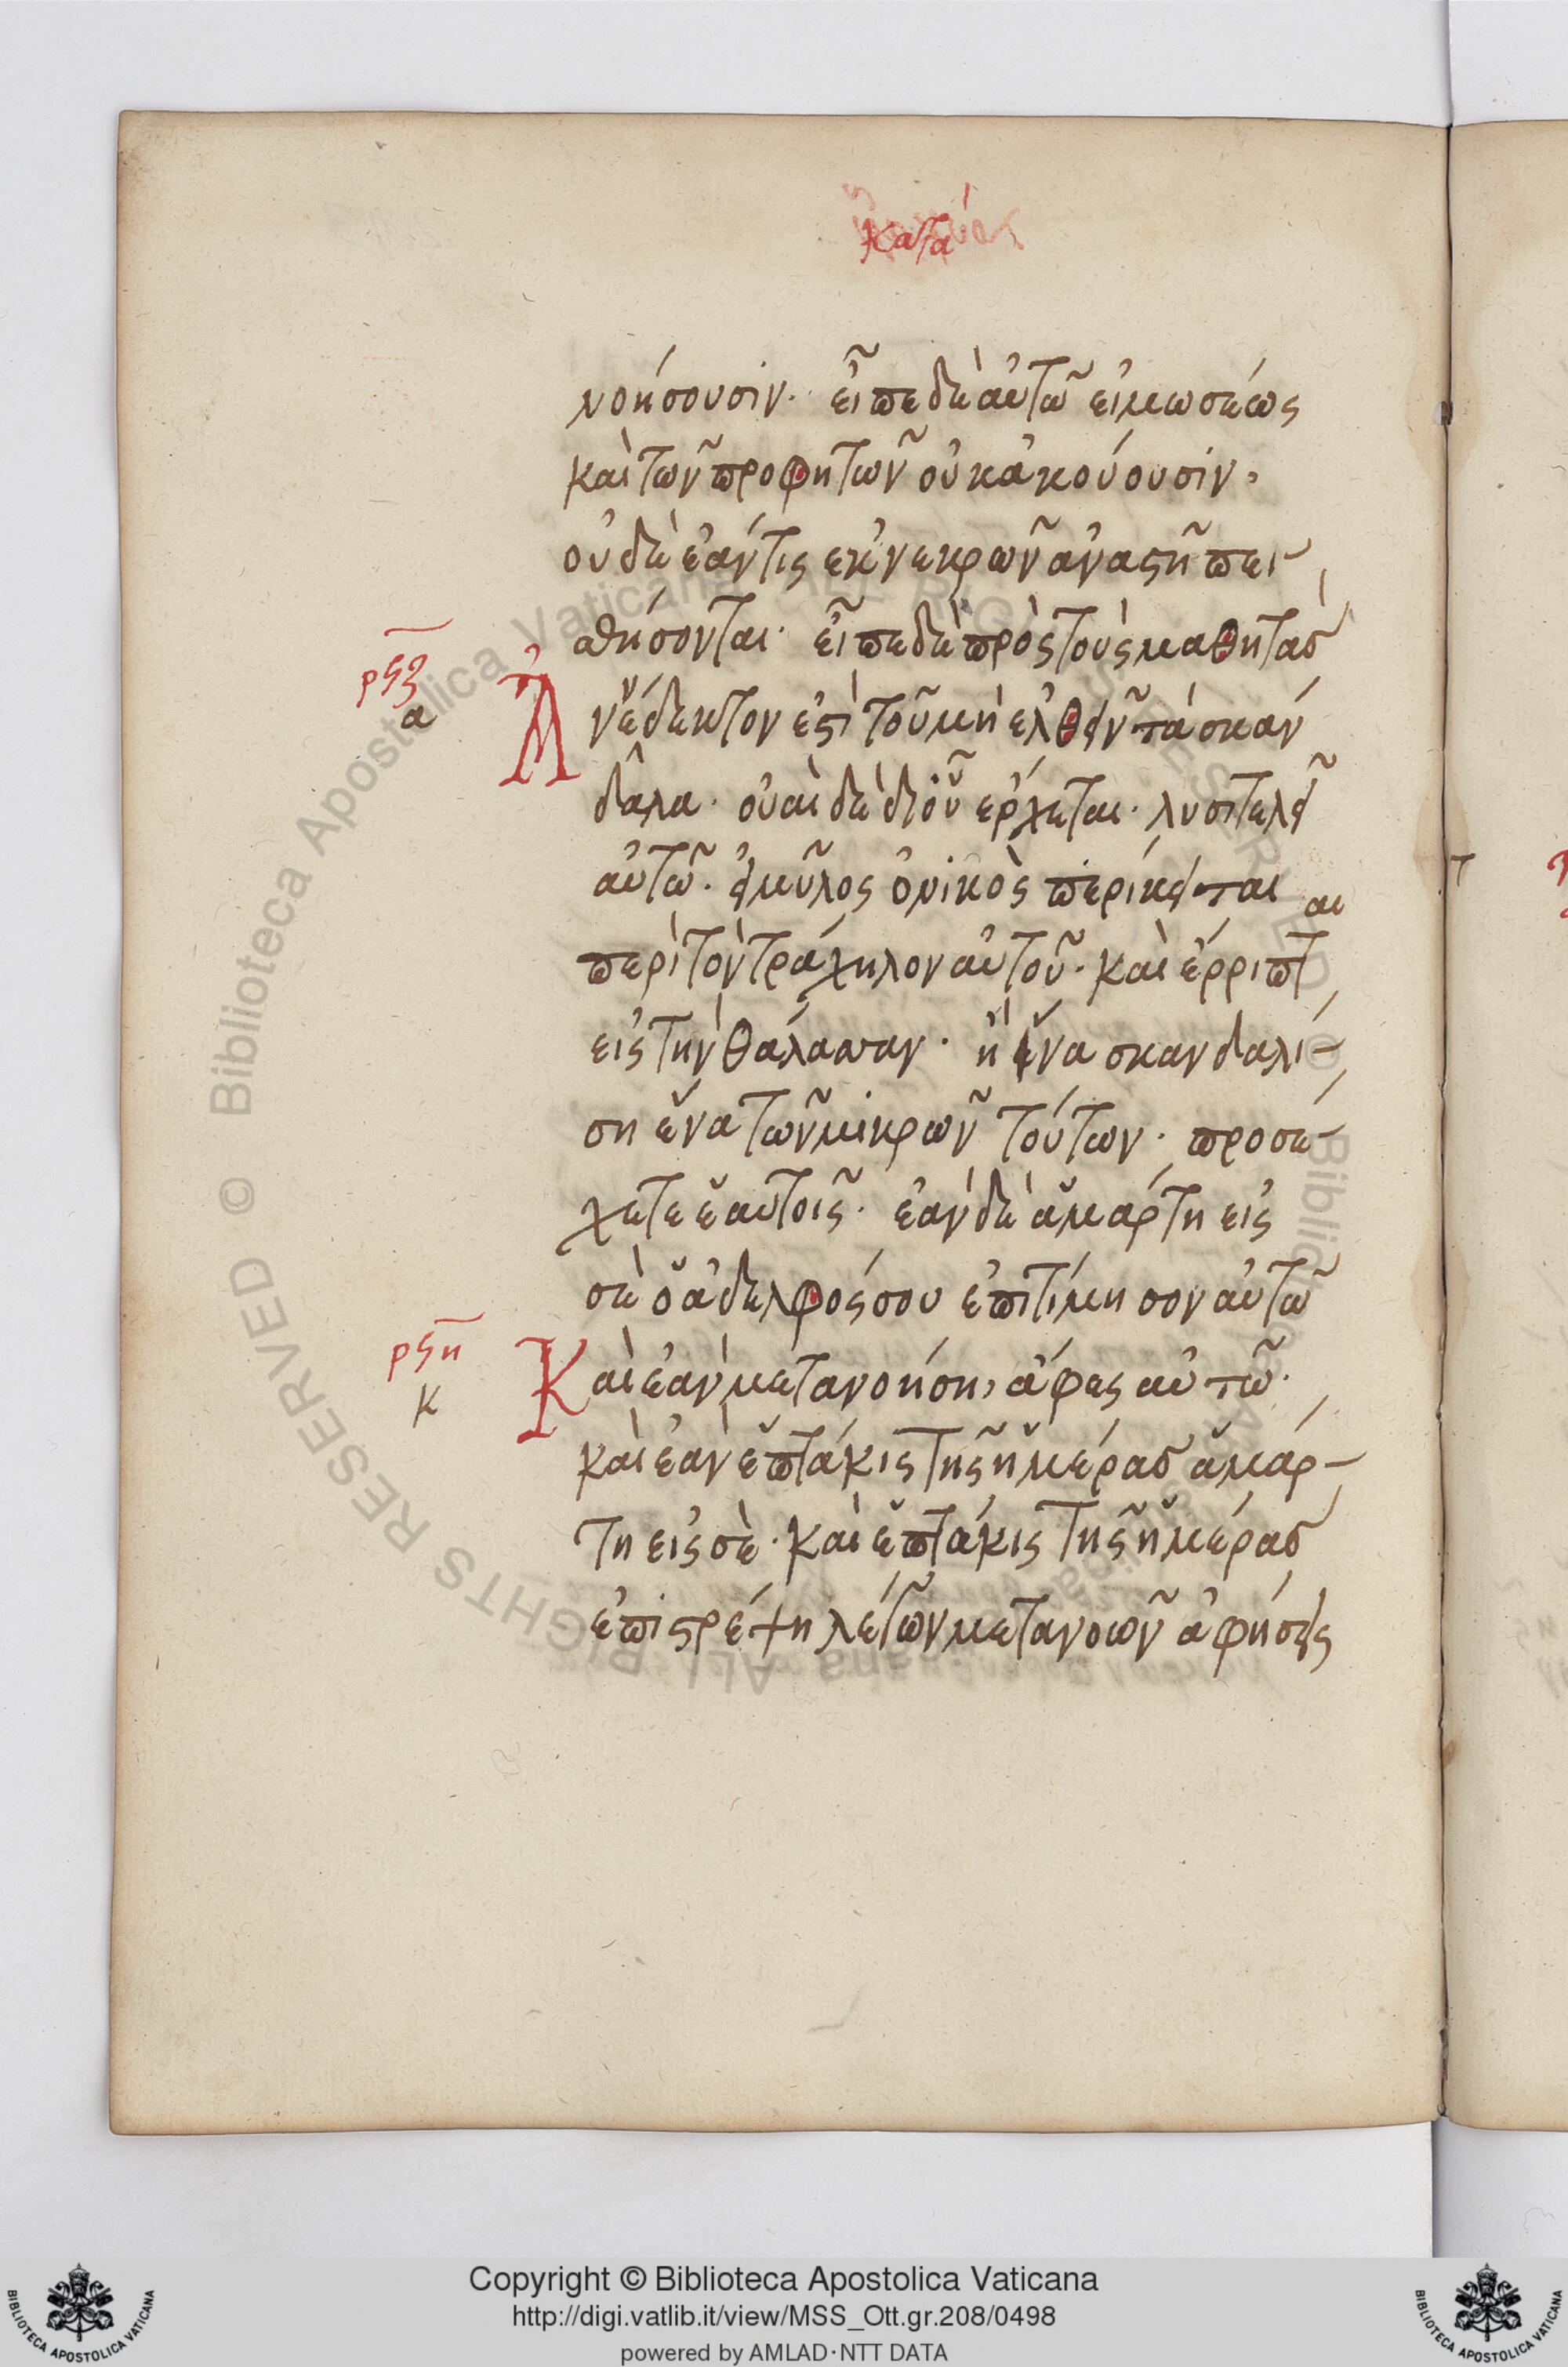 κατα
νοήσουσιν· εἶπε δὲ αὐτῶ εἰ μωσέως
καὶ τῶν προφητῶν οὐκ ἀκούουσιν·
οὐδὲ ἐάν τις ἐκ νεκρῶν ἀναστῆ πει-
σθήσονται· εἶπε δὲ πρὸς τοὺς μαθητὰσ
ρϟζ
α
Ἀνἕδεκτον ἐστὶ τοῦ μὴ ἐλθεῖν τὰ σκάν
δαλα· οὐαὶ δὲ δι οὗ ἔρχεται· λυσιτελεῖ
αὐτῶ· εἰ μῦλος ὀνικὸς περίκειται
περὶ τὸν τράχηλον αὐτοῦ· καὶ ἔρριπται
εἰς τὴν θάλασσαν· ἢ ἵνα σκανδαλί-
ση ἕνα τῶν μικρῶν τούτων· προσέ-
χετε ἑαυτοῖς· ἐὰν δὲ ἁμάρτη εἰς
σὲ ὁ ἀδελφός σου ἐπιτίμησον αὐτῶ
ρϟη
κ
Καὶ ἐὰν μετανοήση, ἄφες αὐτῶ·
καὶ ἐὰν ἑπτάκις τῆς ἡμέρασ ἁμάρ-
τη εἰς σὲ· καὶ ἑπτάκις τῆς ἡμέρασ
ἐπιστρέψη λέγων μετανοῶν ἀφήσεις
© Biblioteca Apostolica Vaticana ALL RIGHTS RESERVED
Copyright © Biblioteca Apostolica Vaticana
http://digi.vatlib.it/view/MSS_Ott.gr.208/0498
powered by AMLAD·NTT DATA
BIBLIOTECA APOSTOLICA VATICANA
BIBLIOTECA APOSTOLICA VATICANA